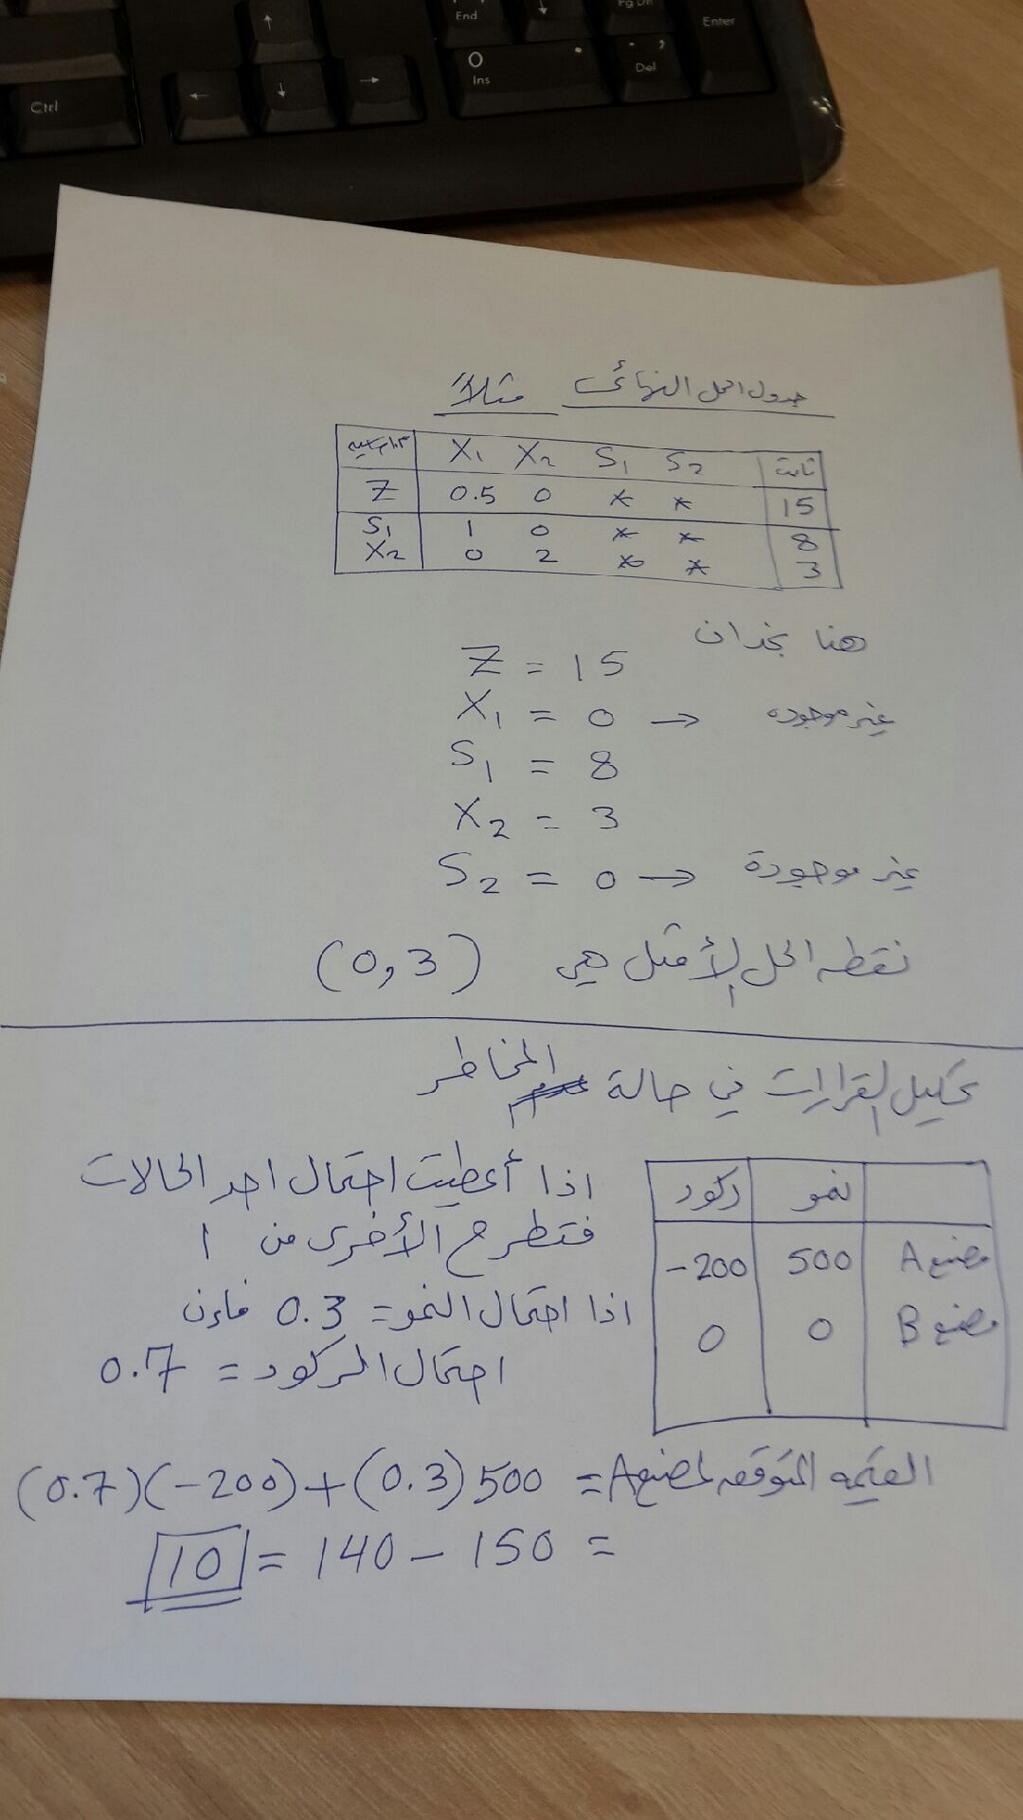 End
Pg Dn
Enter
Ctrl
0
Ins
.
Del
جدول الحل النهائي مثلاً
X1 X2 S1 S2 ثابت
Z 0.5 0 * * 15
S1 1 0 * * 8
X2 0 2 * * 3
هنا نجد ان
Z = 15
X1 = 0 → غير موجوده
S1 = 8
X2 = 3
S2 = 0 → غير موجودة
نقطه الحل الأمثل هي (0,3)
تحليل القرارات في حالة المخاطر
نمو ركود
مصنع A 500 -200
مصنع B 0 0
اذا أعطيت احتمال احد الحالات
فتطرح الأخرى من 1
اذا احتمال النمو = 0.3 فإن
احتمال الركود = 0.7
القيمه المتوقعه لمصنع A = (0.7)(-200)+(0.3)500
= 150 - 140 = 10